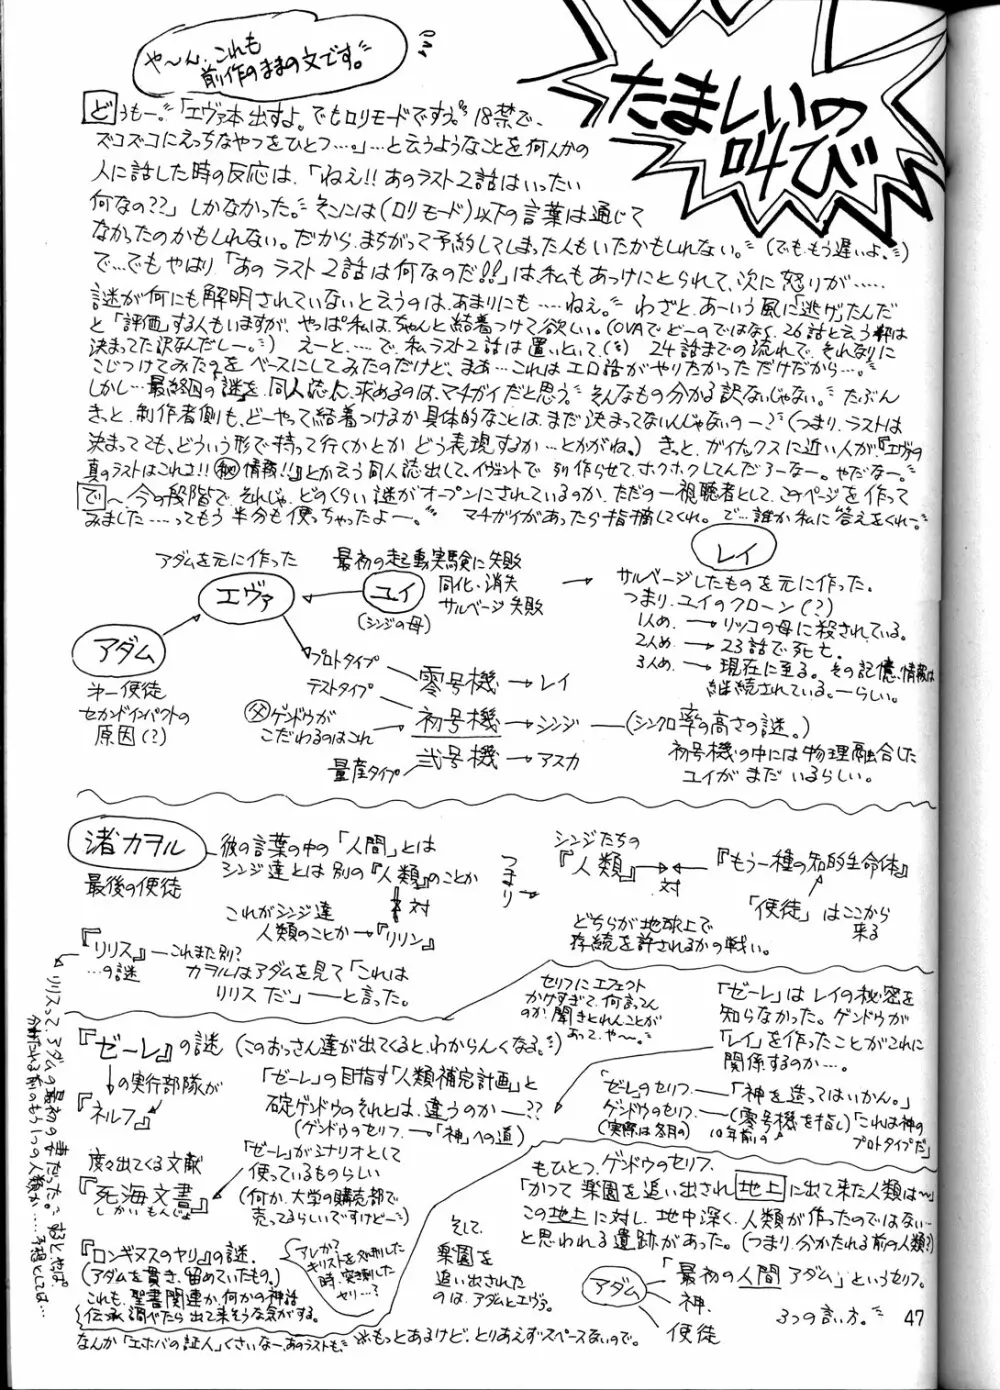 や〜ん、これも
前作のままの文です。
たましいの
叫び
どうもー。「エヴァ本出すよ。でもロリモードですう。18禁で、
ズコズコにえっちなやつをひとつ…。」…と云うようなことを何人かの
人に話した時の反応は、「ねえ!!あのラスト2話はいったい
何なの??」しかなかった。そこには(ロリモード)以下の言葉は通じて
なかったのかもしれない。だから、まちがって予約してしまった人もいたかもしれない。(でも、もう遅いよ。)
で…でもやはり「あのラスト2話は何なのだ!!」は、私もあっけにとられて、次に怒りが……
謎が何にも解明されていないと云うのは、あまりにも……ねえ。わざと、あーいう風に「逃げ」たんだ
と「評価」する人もいますが、やっぱ私は、ちゃんと結着つけて欲しい。(OVAでどーのではなく、26話と云う枠は
決まってた訳なんだしー。)えーと、…で、私、ラスト2話は置いといて、24話までの流れで、それなりに
こじつけてみたのをベースにしてみたのだけど、まあ…これはエロ話がやりたかっただけだから…。
しかし…最終回の謎を同人誌に求めるのは、マチガイだと思う。そんなもの分かる訳ないじゃない。たぶん
きっと、制作者側も、どーやって結着つけるか具体的なことは、まだ決まってないんじゃないのー?(つまり、ラストは
決まってても、どういう形で持って行くかとか どう表現するか…とかがね。)きっと、ガイナックスに近い人が『エヴァの
真のラストはこれさ!!㊙情報!!』とか云う同人誌出して、イヴェントで列作らせて、ホクホクしてんだろーなー。やだなー。
で〜今の段階で、それじゃ、どのくらい謎がオープンにされているのか、ただの一視聴者として、このページを作って
みました……ってもう半分も使っちゃったよー。マチガイがあったら指摘してくれ。で…誰か私に答えをくれー。
アダムを元に作った
エヴァ
最初の起動実験に失敗
ユイ
同化・消失
サルベージ失敗
(シンジの母)
レイ
サルベージしたものを元に作った。
つまり、ユイのクローン(?)
1人め、→リツコの母に殺されている。
2人め、→23話で死亡。
3人め、→現在に至る。その記憶、情報は
継続されている。—らしい。
アダム
第一使徒
セカンドインパクトの
原因(?)
プロトタイプ 零号機→レイ
テストタイプ
㊛ゲンドウが
こだわるのはこれ
初号機→シンジ—(シンクロ率の高さの謎。)
初号機の中には物理融合した
ユイがまだいるらしい。
量産タイプ 弐号機→アスカ
渚カヲル
最後の使徒
彼の言葉の中の「人間」とは
シンジ達とは別の『人類』のことか
対
これがシンジ達
人類のことか→『リリン』
つまり
シンジたちの
『人類』
対
『もう一種の知的生命体』
「使徒」はここから
来る
どちらが地球上で
存続を許されるかの戦い。
『リリス』—これまた別?
…の謎
カヲルはアダムを見て「これは
リリスだ」—と言った。
リリスって、アダムの最初の妻だった。
『ゼーレ』の謎(このおっさん達が出てくると、わからんくなる。)
の実行部隊が
『ネルフ』
「ゼーレ」の目指す「人類補完計画」と
碇ゲンドウのそれとは、違うのか—??
(ゲンドウのセリフ、→「神」への道)
セリフにエフェクト
かけすぎで、何言ってん
のか聞きとれんことが
あって、や〜。
「ゼーレ」はレイの秘密を
知らなかった。ゲンドウが
「レイ」を作ったことがこれに
関係するのか…。
「ゼーレのセリフ、—「神を造ってはいかん。」
ゲンドウのセリフ、—(零号機を指し)「これは神の
プロトタイプだ」
(実際は冬月の) 10年前の
度々出てくる文献
『死海文書』
しかいもんじょ
「ゼーレ」がシナリオとして
使っているものらしい
(何か、大学の購売部で
売ってるらしいですけどー)
『ロンギヌスのヤリ』の謎、
(アダムを貫き、留めていたもの。)
これも、聖書関連か、何かの神話
伝承調べたら出て来そうな気がする。
アレか?
キリストを処刑した
時、突き刺した
ヤリ…?
もひとつ、ゲンドウのセリフ、
「かつて楽園を追い出され地上に出て来た人類は〜」
この地上に対し、地中深く、人類が作ったのではない
と思われる遺跡があった。(つまり、分かたれる前の人類?)
そして、
楽園を
追い出された
のは、アダムとエヴァ。
アダム
「最初の人間アダム」というセリフ。
神、
使徒
3つの言い方。
なんか「エホバの証人」くさいなー、あのラストも、
※もっとあるけど、とりあえずスペースないので。
47